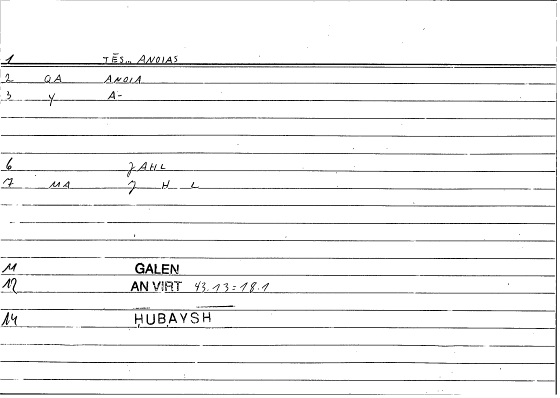 1 TĒS... ANOIAS
2 QA ANOIA
3 Y A-
6 ǦAHL
7 MA Ǧ H L
11 GALEN
12 AN VIRT 43.13 = 18.1
14 ḤUBAYSH